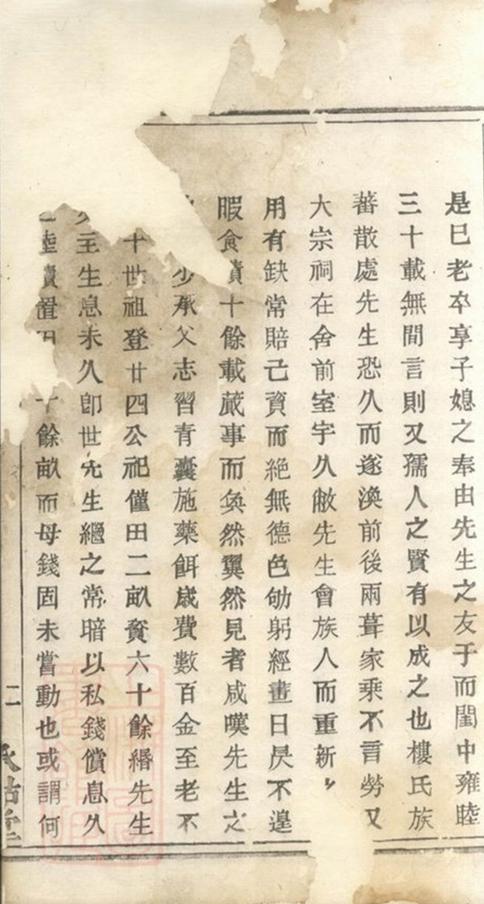 是已老卒享子媳之奉由先生之友于而閨中雍睦
三十載無間言則又孺人之賢有以成之也樓氏族
蕃散處先生恐久而遂渙前後兩葺家乘不言勞又
大宗祠在舍前室宇久敝先生會族人而重新
用有缺常賠己資而絕無德色劬躬經畫日昃不遑
暇食積十餘載蕆事而奐然翼然見者咸嘆先生之
少承父志習青囊施藥餌歲費數百金至老不
十世祖登廿四公祀僅田二畝貲六十餘緡先生
主生息未久卽世先生繼之常暗以私錢償息久
陸續置田十餘畝而母錢固未嘗動也或謂何
二